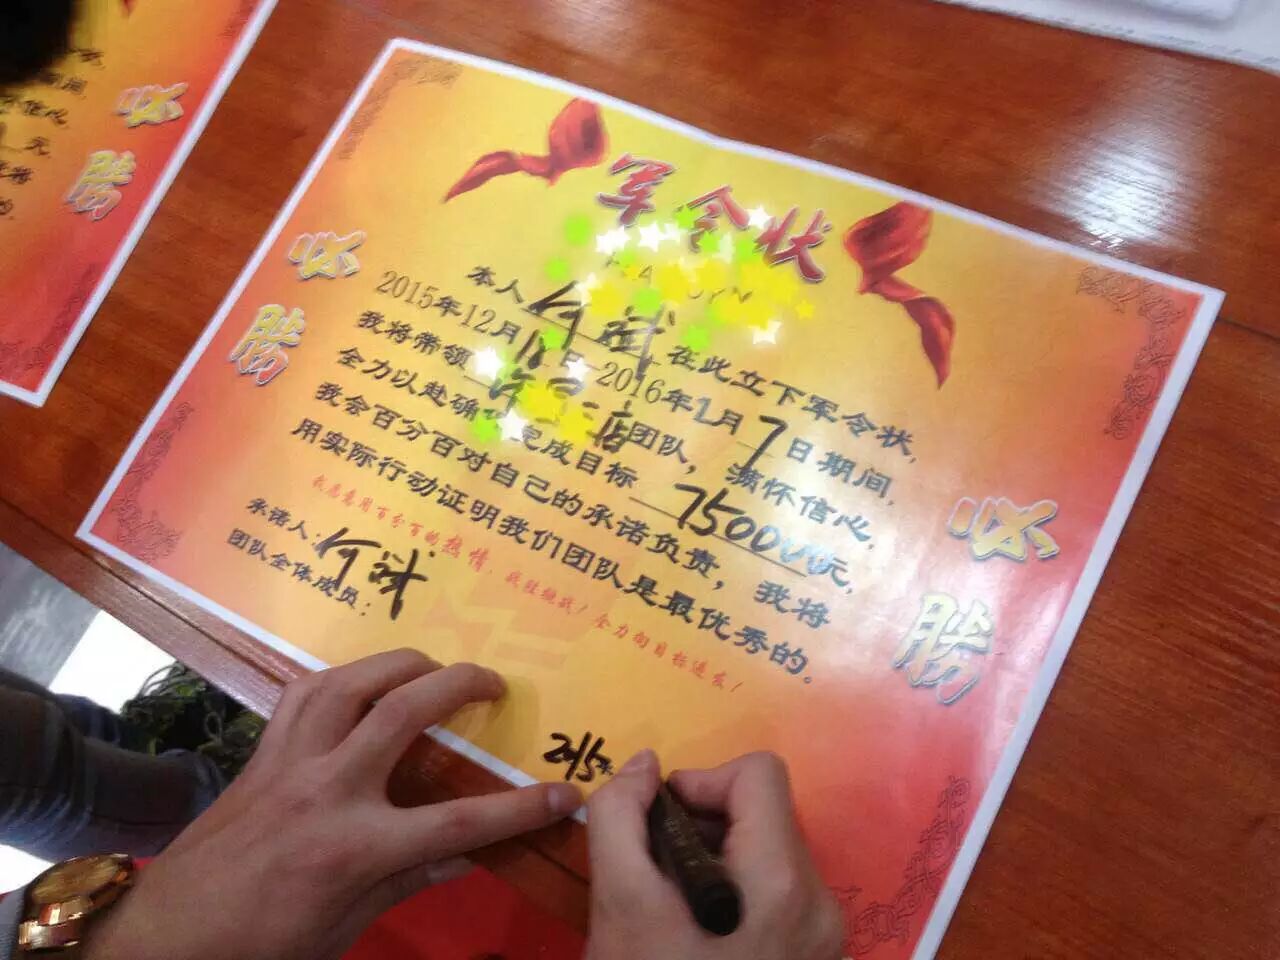 军令状
本人何斌在此立下军令状，
2015年12月18日-2016年1月7日期间，
我将带领 店团队，满怀信心，
全力以赴确 完成目标750000元，
我会百分百对自己的承诺负责，我将
用实际行动证明我们团队是最优秀的。
我愿意用百分百的热情，我胜绝战！全力向目标进发！
承诺人：何斌
团队全体成员：
2015年
必胜
必胜
必胜
元